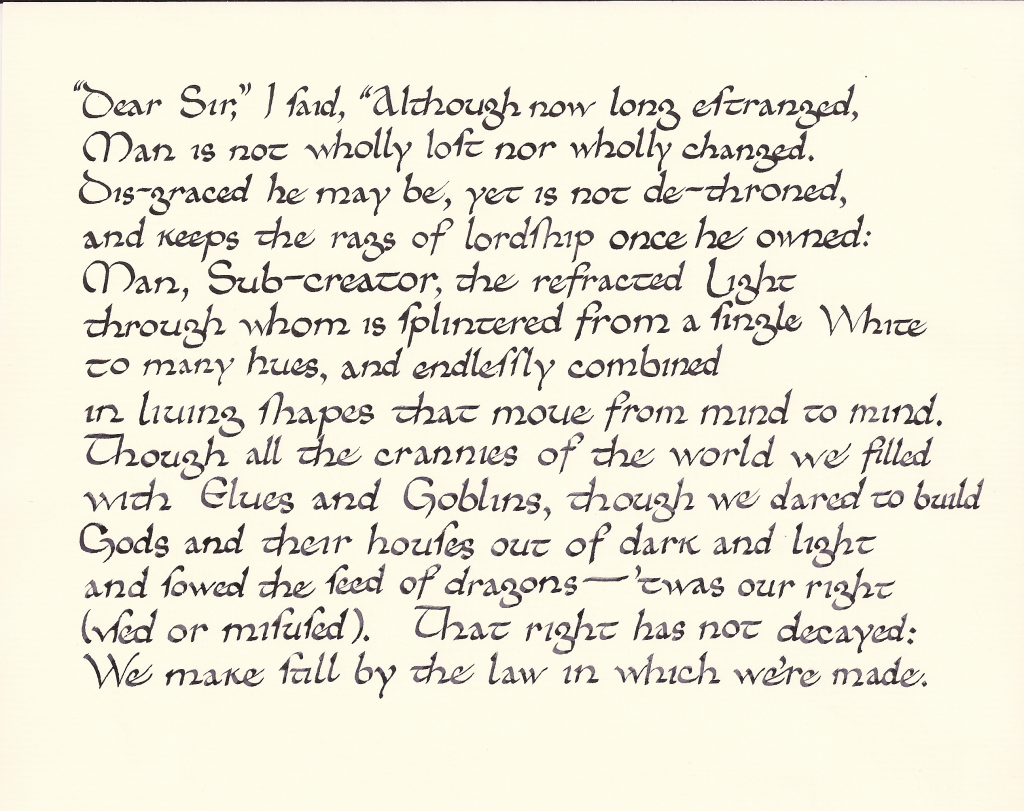 “Dear Sir,” I ſaid, “Although now long eſtranged,
Man is not wholly loſt nor wholly changed.
Dis-graced he may be, yet is not de-throned,
and keeps the rags of lordſhip once he owned:
Man, Sub-creator, the refracted Light
through whom is ſplintered from a ſingle White
to many hues, and endleſſly combined
in liuing ſhapes that moue from mind to mind.
Though all the crannies of the world we filled
with Elues and Goblins, though we dared to build
Gods and their houſes out of dark and light
and ſowed the ſeed of dragons—’twas our right
(vſed or miſuſed). That right has not decayed:
We make ſtill by the law in which we’re made.